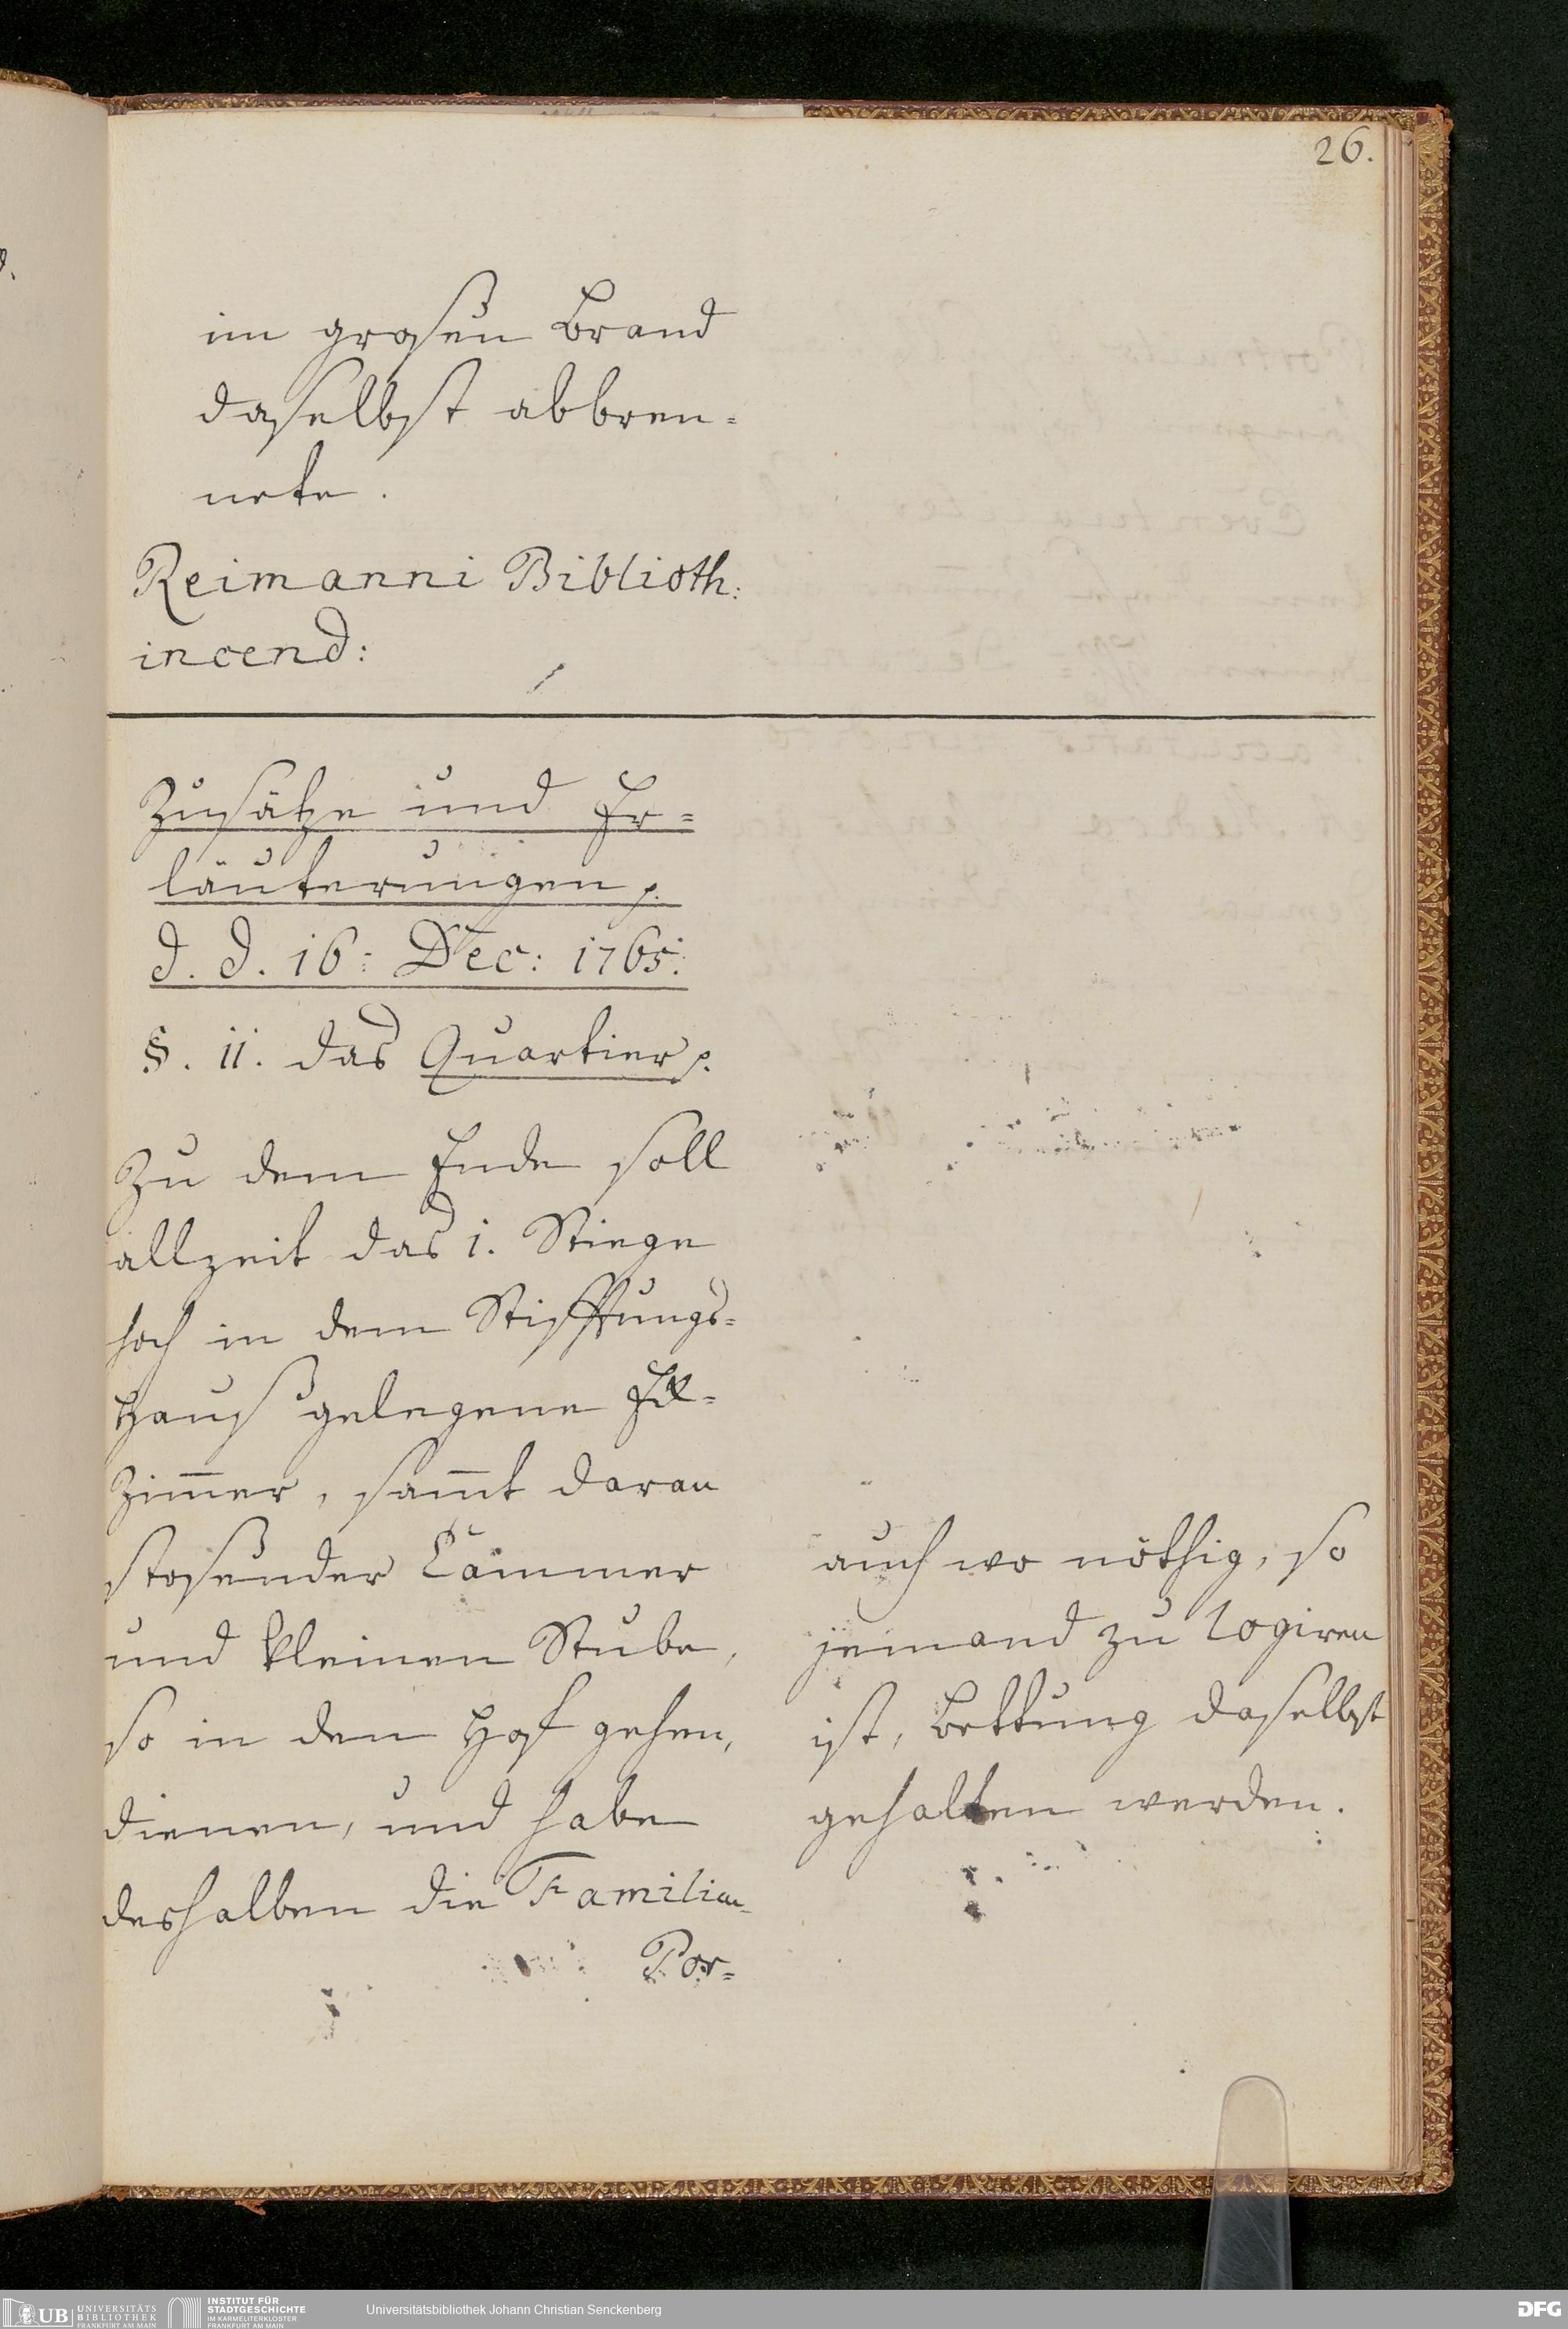 26.
im großen Brand
daselbst abbren-
nete.
Reimanni Biblioth:
incend:
Zusätze und Er-
läuterungen p.
d. d. 16: Dec: 1765:
§. 11. das Quartier p.
Zu dem Ende soll
allzeit das 1. Stiege
hoch in dem Stifftungs-
Hauß gelegene Eck-
Zim̅er, sam̅t daran
stoßender Cammer
und kleinen Stube,
so in den Hof gehen,
dienen, und habe
deshalben die Familien-
Por-
auch wo nöthig, so
jemand zu logiren
ist, Bettung daselbst
gehalten werden.
UB UNIVERSITÄTS
BIBLIOTHEK
FRANKFURT AM MAIN
INSTITUT FÜR
STADTGESCHICHTE
IM KARMELITERKLOSTER
FRANKFURT AM MAIN
Universitätsbibliothek Johann Christian Senckenberg
DFG